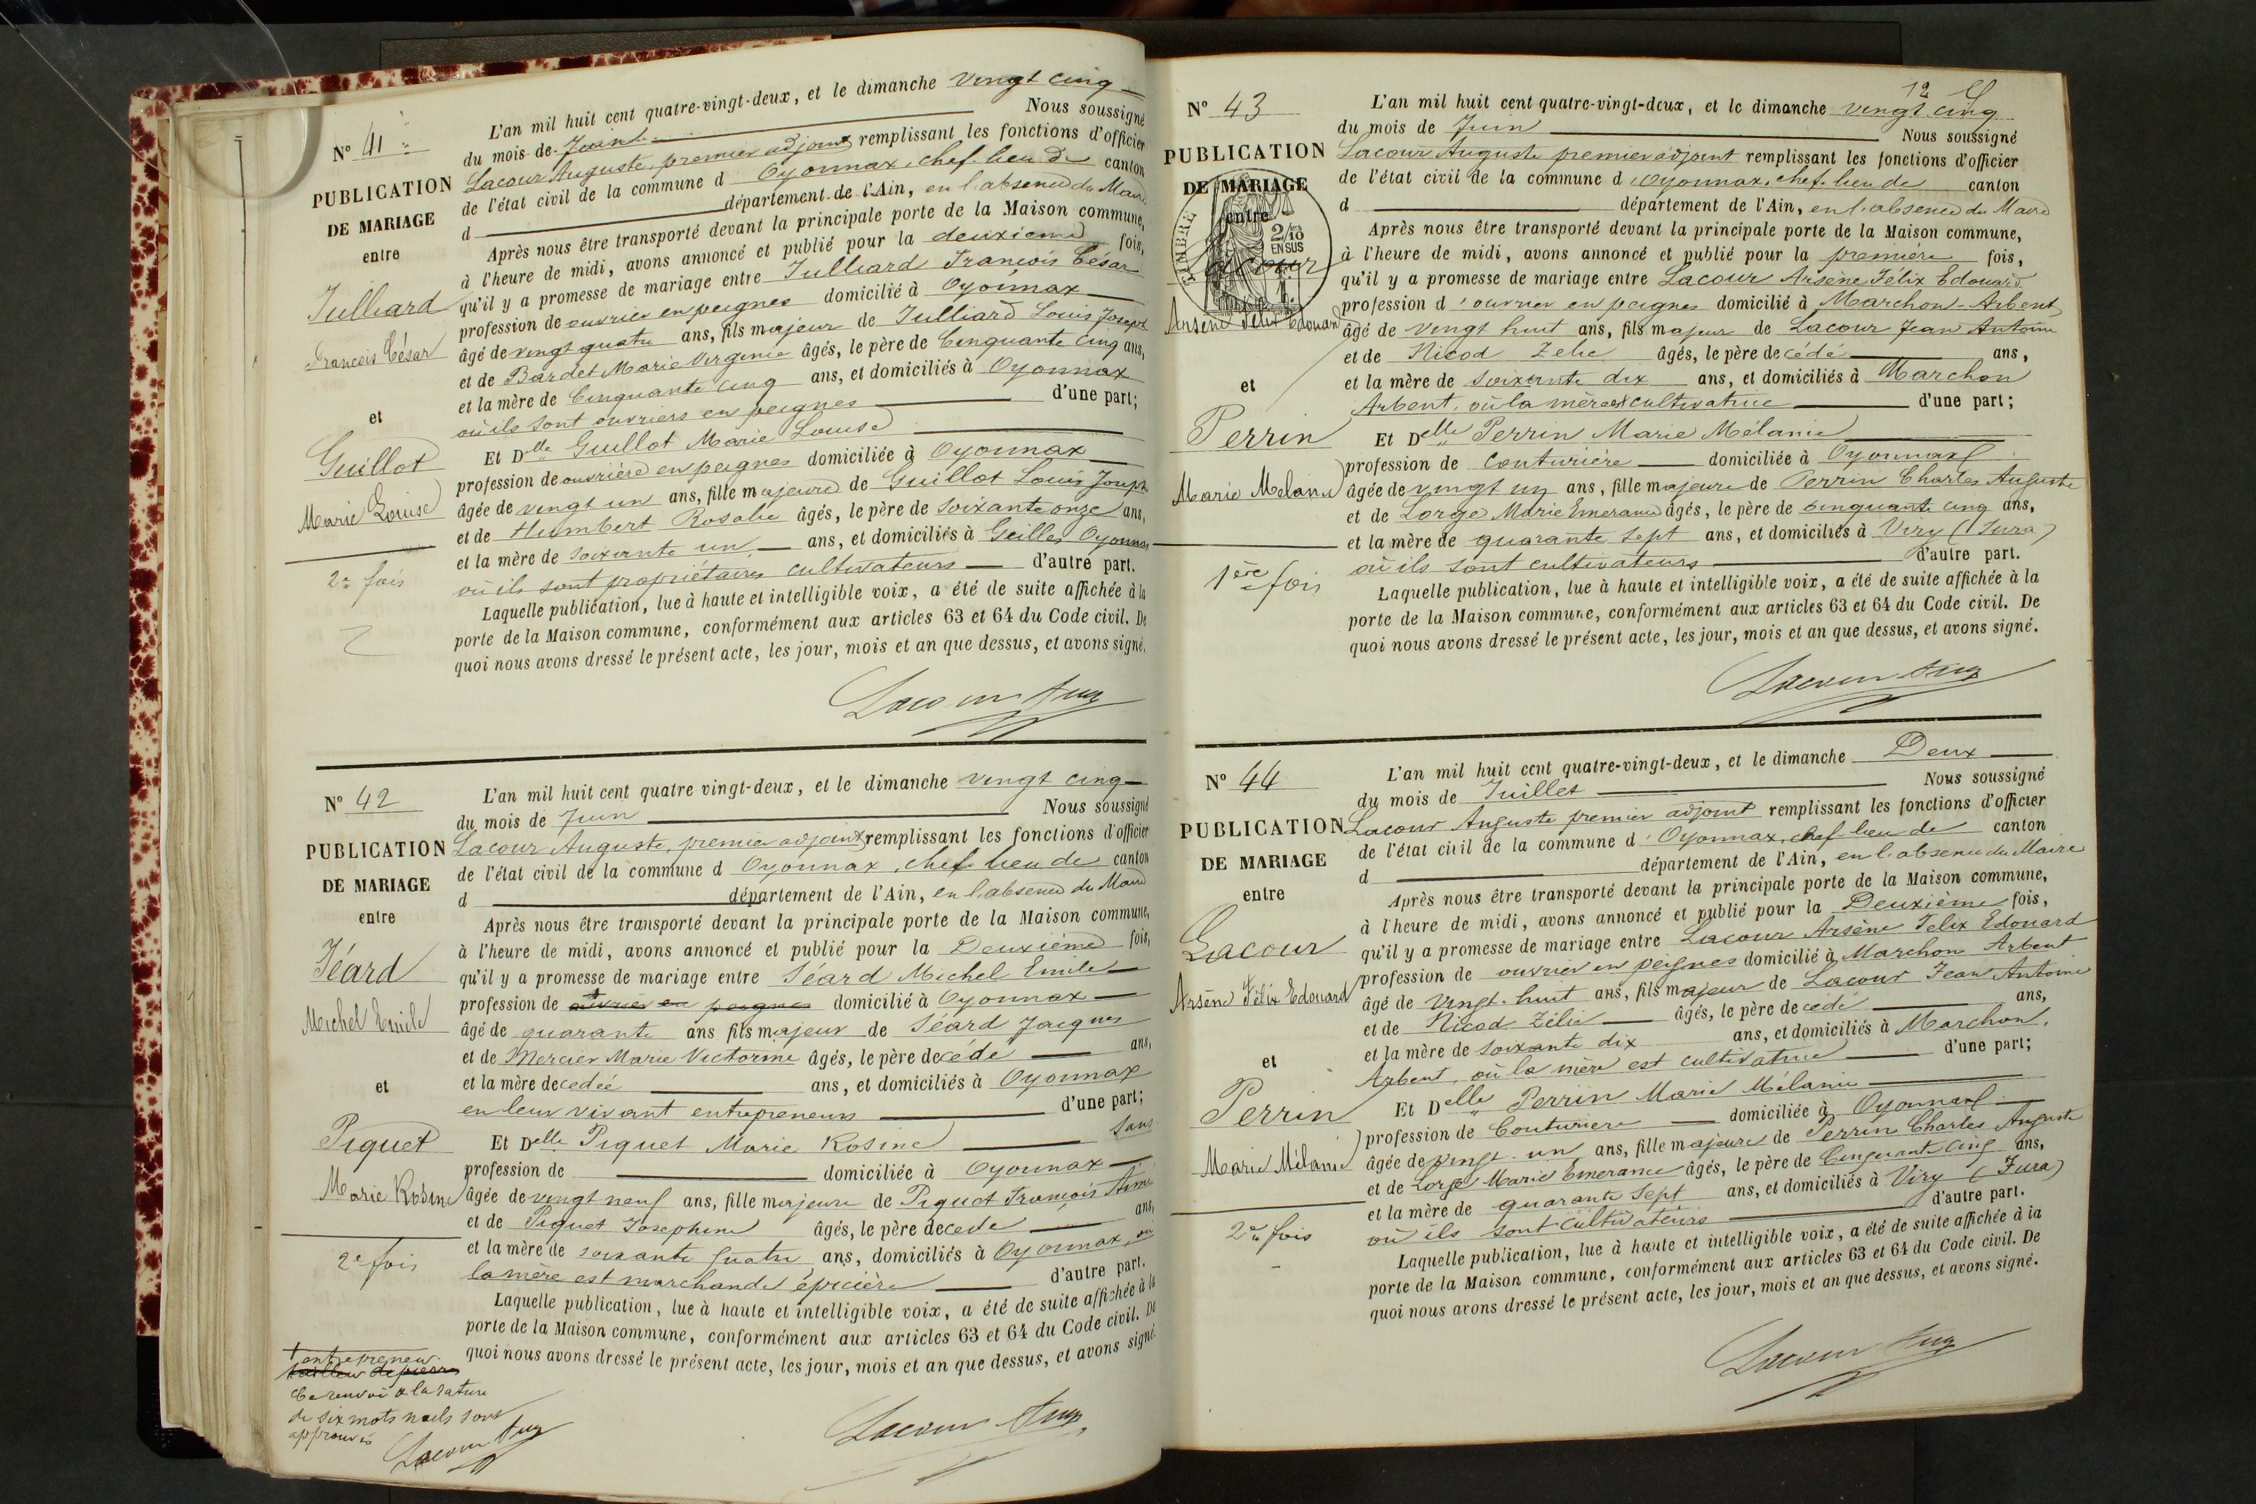 N° 41
PUBLICATION
DE MARIAGE
entre
Julliard
François César
et
Guillot
Marie Louise
2e fois
L'an mil huit cent quatre-vingt-deux, et le dimanche vingt cinq
du mois de Juin Nous soussigné
Lacour Auguste, premier adjoint remplissant les fonctions d'officier
de l'état civil de la commune d Oyonnax, chef-lieu de canton
d département de l'Ain, en l'absence du Maire
Après nous être transporté devant la principale porte de la Maison commune,
à l'heure de midi, avons annoncé et publié pour la deuxième fois,
qu'il y a promesse de mariage entre Julliard François César
profession de ouvrier en peignes domicilié à Oyonnax
âgé de vingt quatre ans, fils majeur de Julliard Louis Joseph
et de Bardet Marie Virginie âgés, le père de Cinquante cinq ans,
et la mère de Cinquante cinq ans, et domiciliés à Oyonnax
où ils sont ouvriers en peignes d'une part;
Et Delle Guillot Marie Louise
profession de ouvrière en peignes domiciliée à Oyonnax
âgée de vingt un ans, fille majeure de Guillot Louis Joseph
et de Humbert Rosalie âgés, le père de soixante onze ans,
et la mère de soixante un ans, et domiciliés à Geilles Oyonnax
où ils sont propriétaires cultivateurs d'autre part.
Laquelle publication, lue à haute et intelligible voix, a été de suite affichée à la
porte de la Maison commune, conformément aux articles 63 et 64 du Code civil. De
quoi nous avons dressé le présent acte, les jour, mois et an que dessus, et avons signé.
Lacour Aug
N° 42
PUBLICATION
DE MARIAGE
entre
Séard
Michel Emile
et
Piquet
Marie Rosine
2e fois
+ entrepreneur
tailleur de pierre
Ce renvoi & la rature
de six mots nuls sont
approuvés
Lacour Aug
L'an mil huit cent quatre vingt-deux, et le dimanche vingt cinq
du mois de Juin Nous soussigné
Lacour Auguste, premier adjoint remplissant les fonctions d'officier
de l'état civil de la commune d Oyonnax, chef-lieu de canton
d département de l'Ain, en l'absence du Maire
Après nous être transporté devant la principale porte de la Maison commune,
à l'heure de midi, avons annoncé et publié pour la Deuxième fois,
qu'il y a promesse de mariage entre Séard Michel Emile
profession de + ouvrier en peignes domicilié à Oyonnax
âgé de quarante ans fils majeur de Séard Jacques
et de Mercier Marie Victorine âgés, le père decédé ans,
et la mère decedée ans, et domiciliés à Oyonnax
en leur vivant entrepreneurs d'une part;
Et Delle Piquet Marie Rosine Sans
profession de domiciliée à Oyonnax
âgée de vingt neuf ans, fille majeure de Piquet François Aimé
et de Piquet Josephine âgés, le père decede ans,
et la mère de soixante quatre ans, domiciliés à Oyonnax, où
la mère est marchande épicière d'autre part.
Laquelle publication, lue à haute et intelligible voix, a été de suite affichée à la
porte de la Maison commune, conformément aux articles 63 et 64 du Code civil. De
quoi nous avons dressé le présent acte, les jour, mois et an que dessus, et avons signé.
Lacour Aug
12
N° 43
PUBLICATION
DE MARIAGE
entre
TIMBRE
2/10
EN SUS
Lacour
Arsène Félix Edouard
et
Perrin
Marie Melanie
1ère fois
L'an mil huit cent quatre-vingt-deux, et le dimanche vingt cinq
du mois de Juin Nous soussigné
Lacour Auguste premier adjoint remplissant les fonctions d'officier
de l'état civil de la commune d Oyonnax, chef-lieu de canton
d département de l'Ain, en l'absence du Maire
Après nous être transporté devant la principale porte de la Maison commune,
à l'heure de midi, avons annoncé et publié pour la première fois,
qu'il y a promesse de mariage entre Lacour Arsène Félix Edouard
profession d'ouvrier en peignes domicilié à Marchon-Arbent,
âgé de vingt huit ans, fils majeur de Lacour Jean Antoine
et de Nicod Zelie âgés, le père decédé ans,
et la mère de soixante dix ans, et domiciliés à Marchon
Arbent, où la mère est cultivatrice d'une part;
Et Delle Perrin Marie Mélanie
profession de couturière domiciliée à Oyonnax
âgée de vingt un ans, fille majeure de Perrin Charles Auguste
et de Lorge Marie Emerance âgés, le père de cinquante cinq ans,
et la mère de quarante sept ans, et domiciliés à Viry (Jura)
où ils sont cultivateurs d'autre part.
Laquelle publication, lue à haute et intelligible voix, a été de suite affichée à la
porte de la Maison commune, conformément aux articles 63 et 64 du Code civil. De
quoi nous avons dressé le présent acte, les jour, mois et an que dessus, et avons signé.
Lacour Aug
N° 44
PUBLICATION
DE MARIAGE
entre
Lacour
Arsène Félix Edouard
et
Perrin
Marie Mélanie
2e fois
L'an mil huit cent quatre-vingt-deux, et le dimanche Deux
du mois de Juillet Nous soussigné
Lacour Auguste premier adjoint remplissant les fonctions d'officier
de l'état civil de la commune d'Oyonnax, chef-lieu de canton
d département de l'Ain, en l'absence du Maire
Après nous être transporté devant la principale porte de la Maison commune,
à l'heure de midi, avons annoncé et publié pour la Deuxième fois,
qu'il y a promesse de mariage entre Lacour Arsène Felix Edouard
profession de ouvrier en peignes domicilié à Marchon Arbent
âgé de vingt-huit ans, fils majeur de Lacour Jean Antoine
et de Nicod Zélie âgés, le père decédé ans,
et la mère de soixante dix ans, et domiciliés à Marchon,
Arbent, où la mère est cultivatrice d'une part;
Et Delle Perrin Marie Mélanie
profession de Couturière domiciliée à Oyonnax
âgée de vingt-un ans, fille majeure de Perrin Charles Auguste
et de Lorge Marie Emerance âgés, le père de Cinquante cinq ans,
et la mère de quarante sept ans, et domiciliés à Viry (Jura)
où ils sont cultivateurs d'autre part.
Laquelle publication, lue à haute et intelligible voix, a été de suite affichée à la
porte de la Maison commune, conformément aux articles 63 et 64 du Code civil. De
quoi nous avons dressé le présent acte, les jour, mois et an que dessus, et avons signé.
Lacour Aug